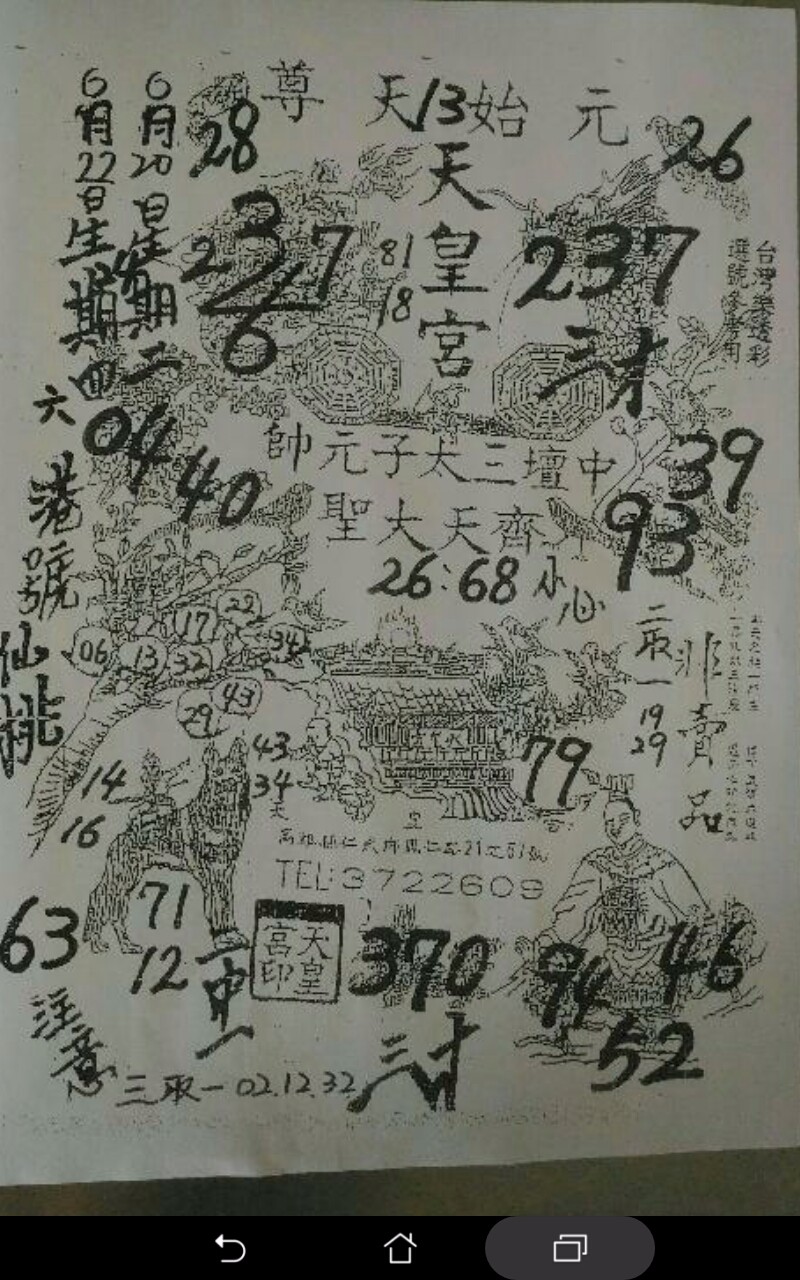 尊 天 13 始 元
28
26
天皇宮
6月20日星期二
6月22日星期四
2 3 7
6
81
18
237
三才
台灣樂透彩
選號參考用
六
港號
仙桃
04
40
帥元子太三壇中
聖大天齊
39
93
26:68 小心
二取一
19
29
非賣品
22
17
34
06
13
32
43
29
43
34
14
16
79
天
皇
宮
TEL:3722609
63
注意
71
12
二中一
天皇
宮印
370
三才
94
46
52
三取一 02.12.32